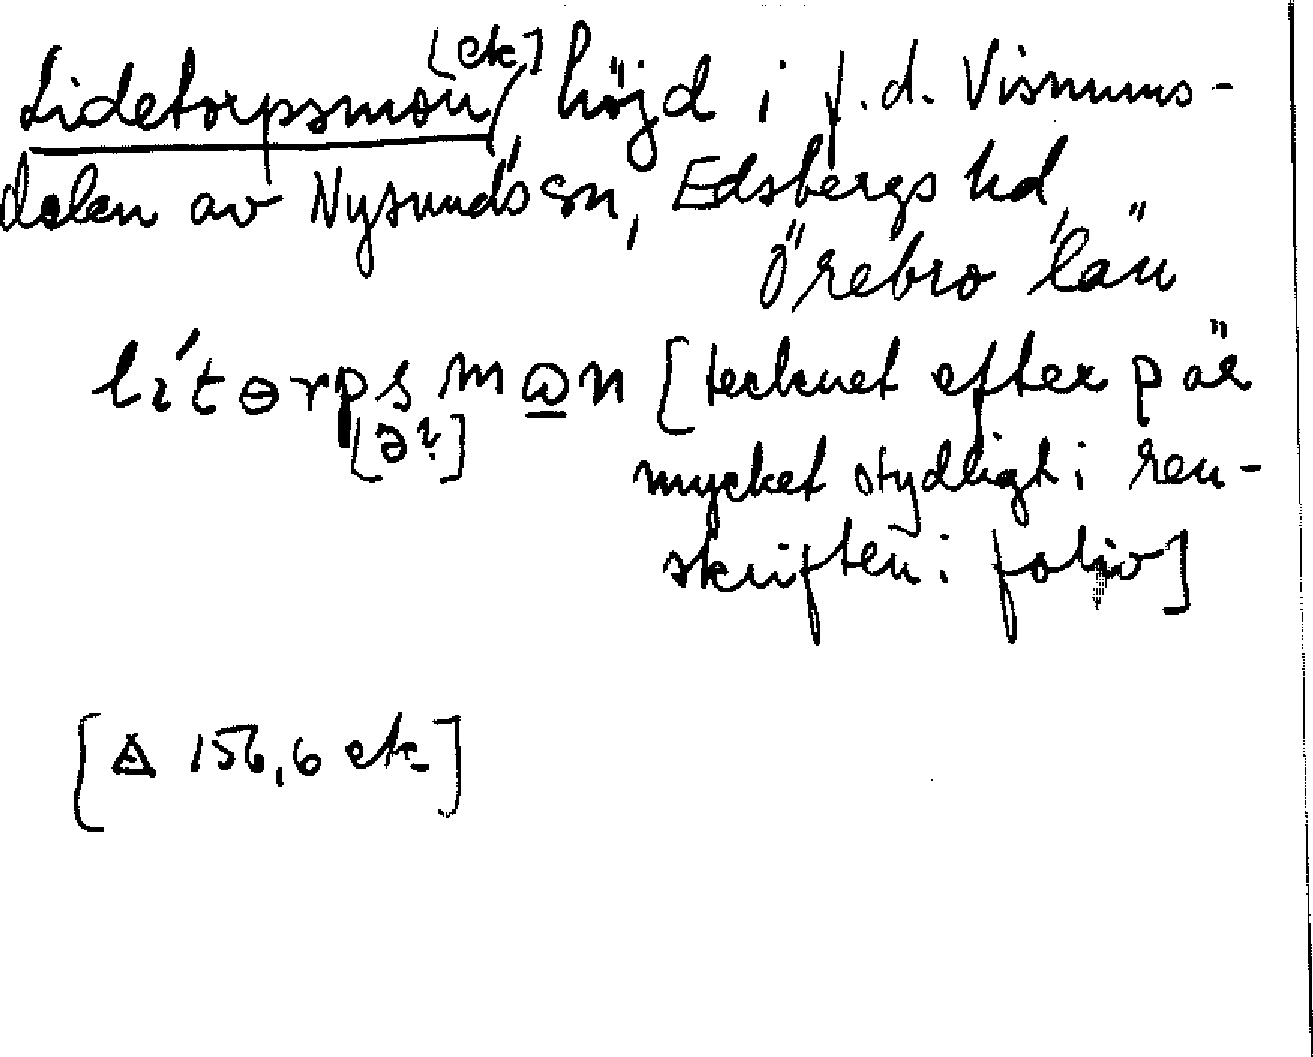 Lidetorpsmon [ek], höjd i f.d. Visnums-
delen av Nysunds sn, Edsbergs hd,
Örebro län
li´tɵrpsmωn [tecknet efter p är
[ə?] mycket otydligt i ren-
skriften i folio]
[△ 156,6 ek]